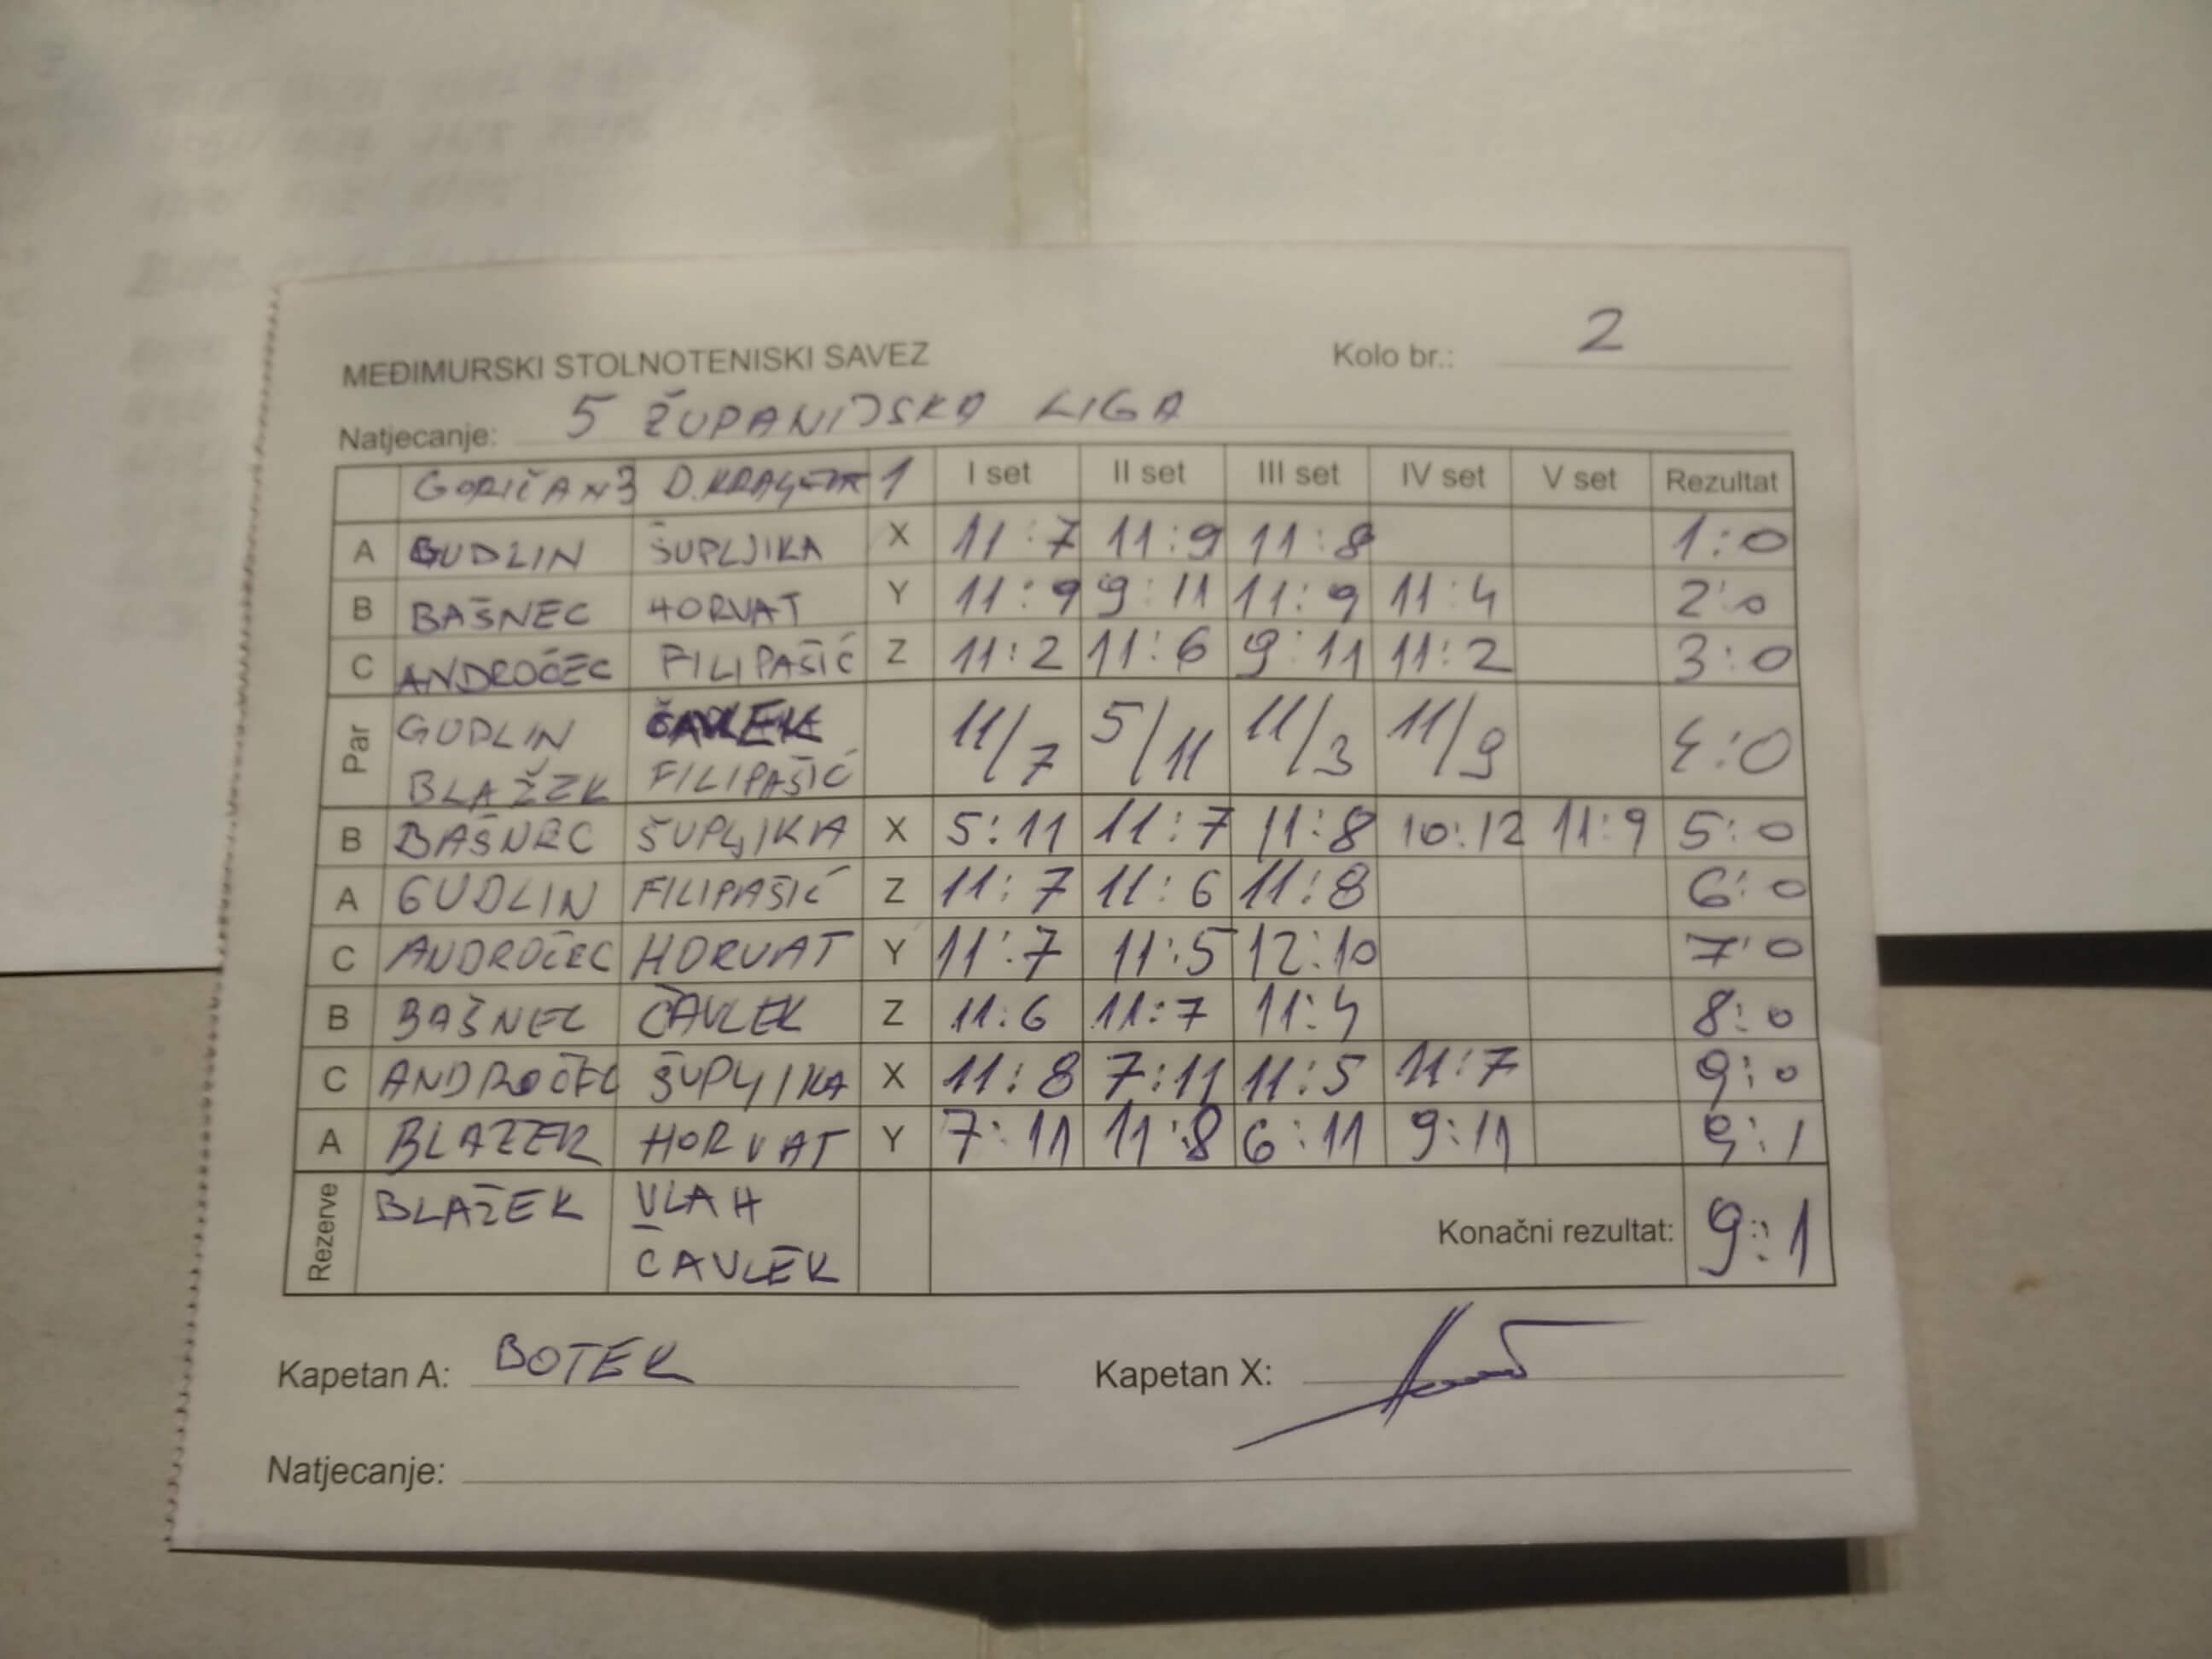 MEĐIMURSKI STOLNOTENISKI SAVEZ Kolo br.: 2
Natjecanje: 5 ŽUPANIJSKA LIGA
GORIČAN 3 D. 1 I set II set III set IV set V set Rezultat
A GUDLIN ŠUPLJIKA X 11:7 11:9 11:8 1:0
B BAŠNEC HORVAT Y 11:9 9:11 11:9 11:4 2:0
C ANDROČEC FILIPAŠIĆ Z 11:2 11:6 9:11 11:2 3:0
Par GUDLIN ČAVLEK 11/7 5/11 11/3 11/9 4:0
BLAŽEK FILIPAŠIĆ
B BAŠNEC ŠUPLJIKA X 5:11 11:7 11:8 10:12 11:9 5:0
A GUDLIN FILIPAŠIĆ Z 11:7 11:6 11:8 6:0
C ANDROČEC HORVAT Y 11:7 11:5 12:10 7:0
B BAŠNEC ČAVLEK Z 11:6 11:7 11:4 8:0
C ANDROČEC ŠUPLJIKA X 11:8 7:11 11:5 11:7 9:0
A BLAZEK HORVAT Y 7:11 11:8 6:11 9:11 9:1
Rezerve BLAŽEK VLAH Konačni rezultat: 9:1
ČAVLEK
Kapetan A: BOTEK Kapetan X:
Natjecanje: